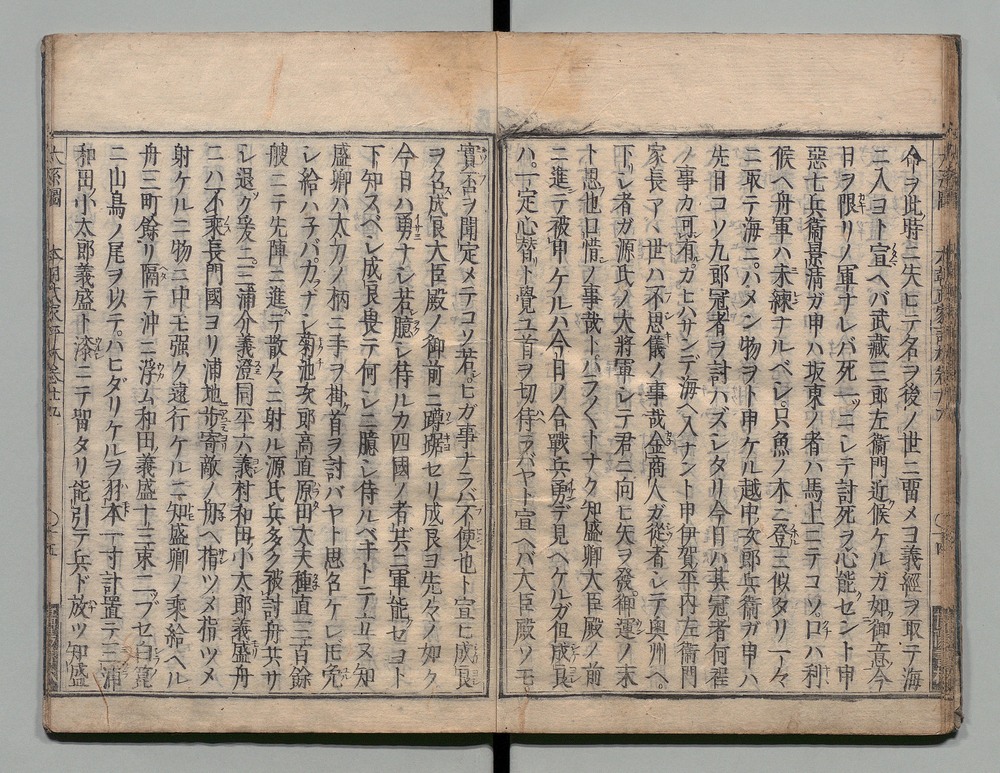 命ヲ此時ニ失ヒテ名ヲ後ノ世ニ留メヨ義經ヲ取テ海
ニ入ヨト宣ヘバ武藏三郎左衞門近候ケルガ如御意今
日ヲ限リノ軍ナレバ死一ツニシテ討死ヲ心能セント申
惡七兵衞景清ガ申ハ坂東ノ者ハ馬上ニテコソ口ハ利
候ヘ舟軍ハ未練ナルベシ只魚ノ木ニ登ニ似タリ一々
ニ取テ海ニハメン物ヲト申ケル越中次郎兵衞ガ申ハ
先日コソ九郎冠者ヲ討ハズシタリ今日ハ其冠者何程
ノ事カ可有カヒハサンデ海ヘ入ナント申伊賀平内左衞門
家長アハ世ハ不思儀ノ事哉金商人ガ從者シテ奥州ヘ
下シ者ガ源氏ノ大將軍シテ君ニ向ヒ矢ヲ發御運ノ末
ト思也口惜ノ事哉トハラ〱トナク知盛卿大臣殿ノ前
ニ進テ被申ケルハ今日ノ合戰兵勇デ見ヘケルガ但成良
ハ一定心替ト覺ユ首ヲ切侍ラバヤト宣ヘバ大臣殿ソモ
實否ヲ聞定メテコソ若ヒガ事ナラバ不便也ト宣ヒ成良
ヲ名成良大臣殿ノ御前ニ蹲踞セリ成良ヨ先々ノ如ク
今日ハ勇ナシ若臆シ侍ルカ四國ノ者共ニ軍能セヨト
下知スベシ成良畏テ何シニ臆シ侍ルベキトテ立又知
盛卿ハ太刀ノ柄ニ手ヲ掛首ヲ討バヤト思召ケレ𪜈免
シ給ハネバ力ナシ菊池次郎高直原田太夫種直三百餘
艘ニテ先陣ニ進テ散々ニ射ル源氏兵多ク被討舟共サ
シ退ク爰ニ三浦介義澄同平六義村和田小太郎義盛舟
ニハ不乘長門國ヨリ浦地歩寄敵ノ舟ヘ指ツメ指ツメ
射ケルニ物ニ中モ强ク遠行ケルニ知盛卿ノ乘給ヘル
舟三町餘リ隔テ沖ニ浮ム和田義盛十三束二ツブセ白箆
ニ山鳥ノ尾ヲ以テハヒダリケルヲ羽本一寸計置テ三浦
和田小太郎義盛ト漆ニテ書タリ能引テ兵ド放ツ知盛